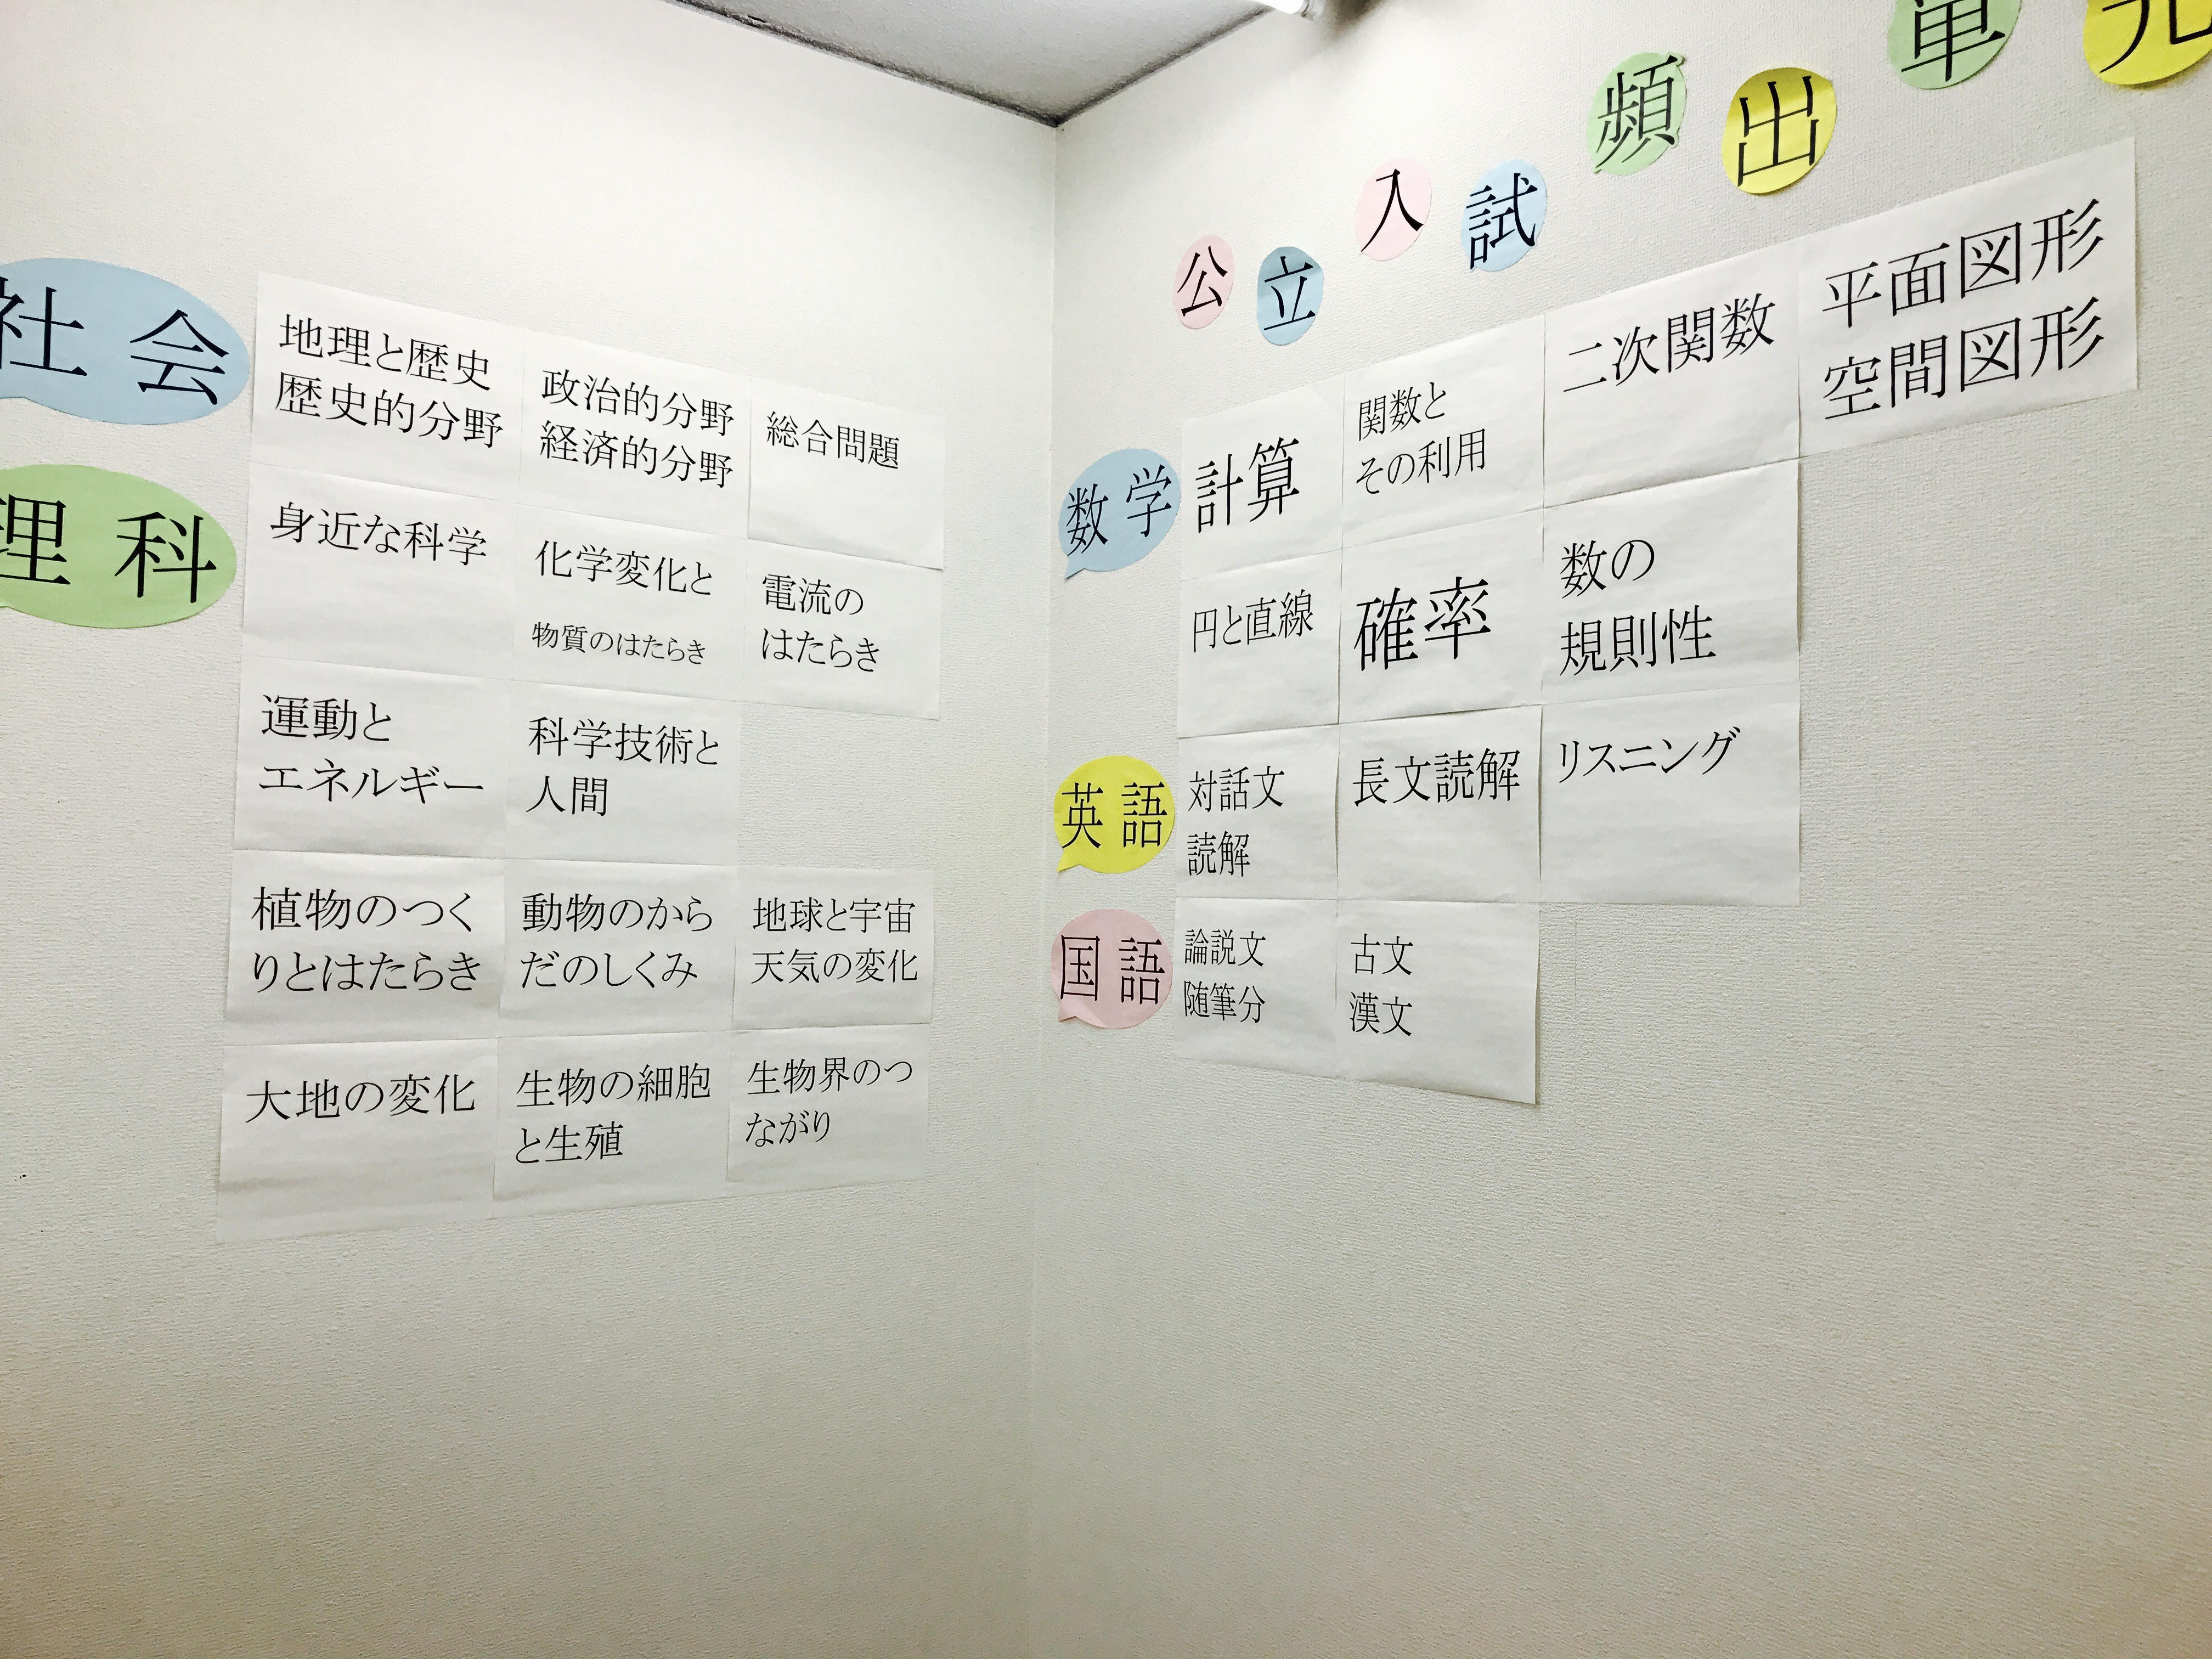 公立入試頻出単元
社会
地理と歴史
歴史的分野
政治的分野
経済的分野
総合問題
理科
身近な科学
化学変化と
物質のはたらき
電流の
はたらき
運動と
エネルギー
科学技術と
人間
植物のつく
りとはたらき
動物のから
だのしくみ
地球と宇宙
天気の変化
大地の変化
生物の細胞
と生殖
生物界のつ
ながり
数学
計算
関数と
その利用
二次関数
平面図形
空間図形
円と直線
確率
数の
規則性
英語
対話文
読解
長文読解
リスニング
国語
論説文
随筆分
古文
漢文